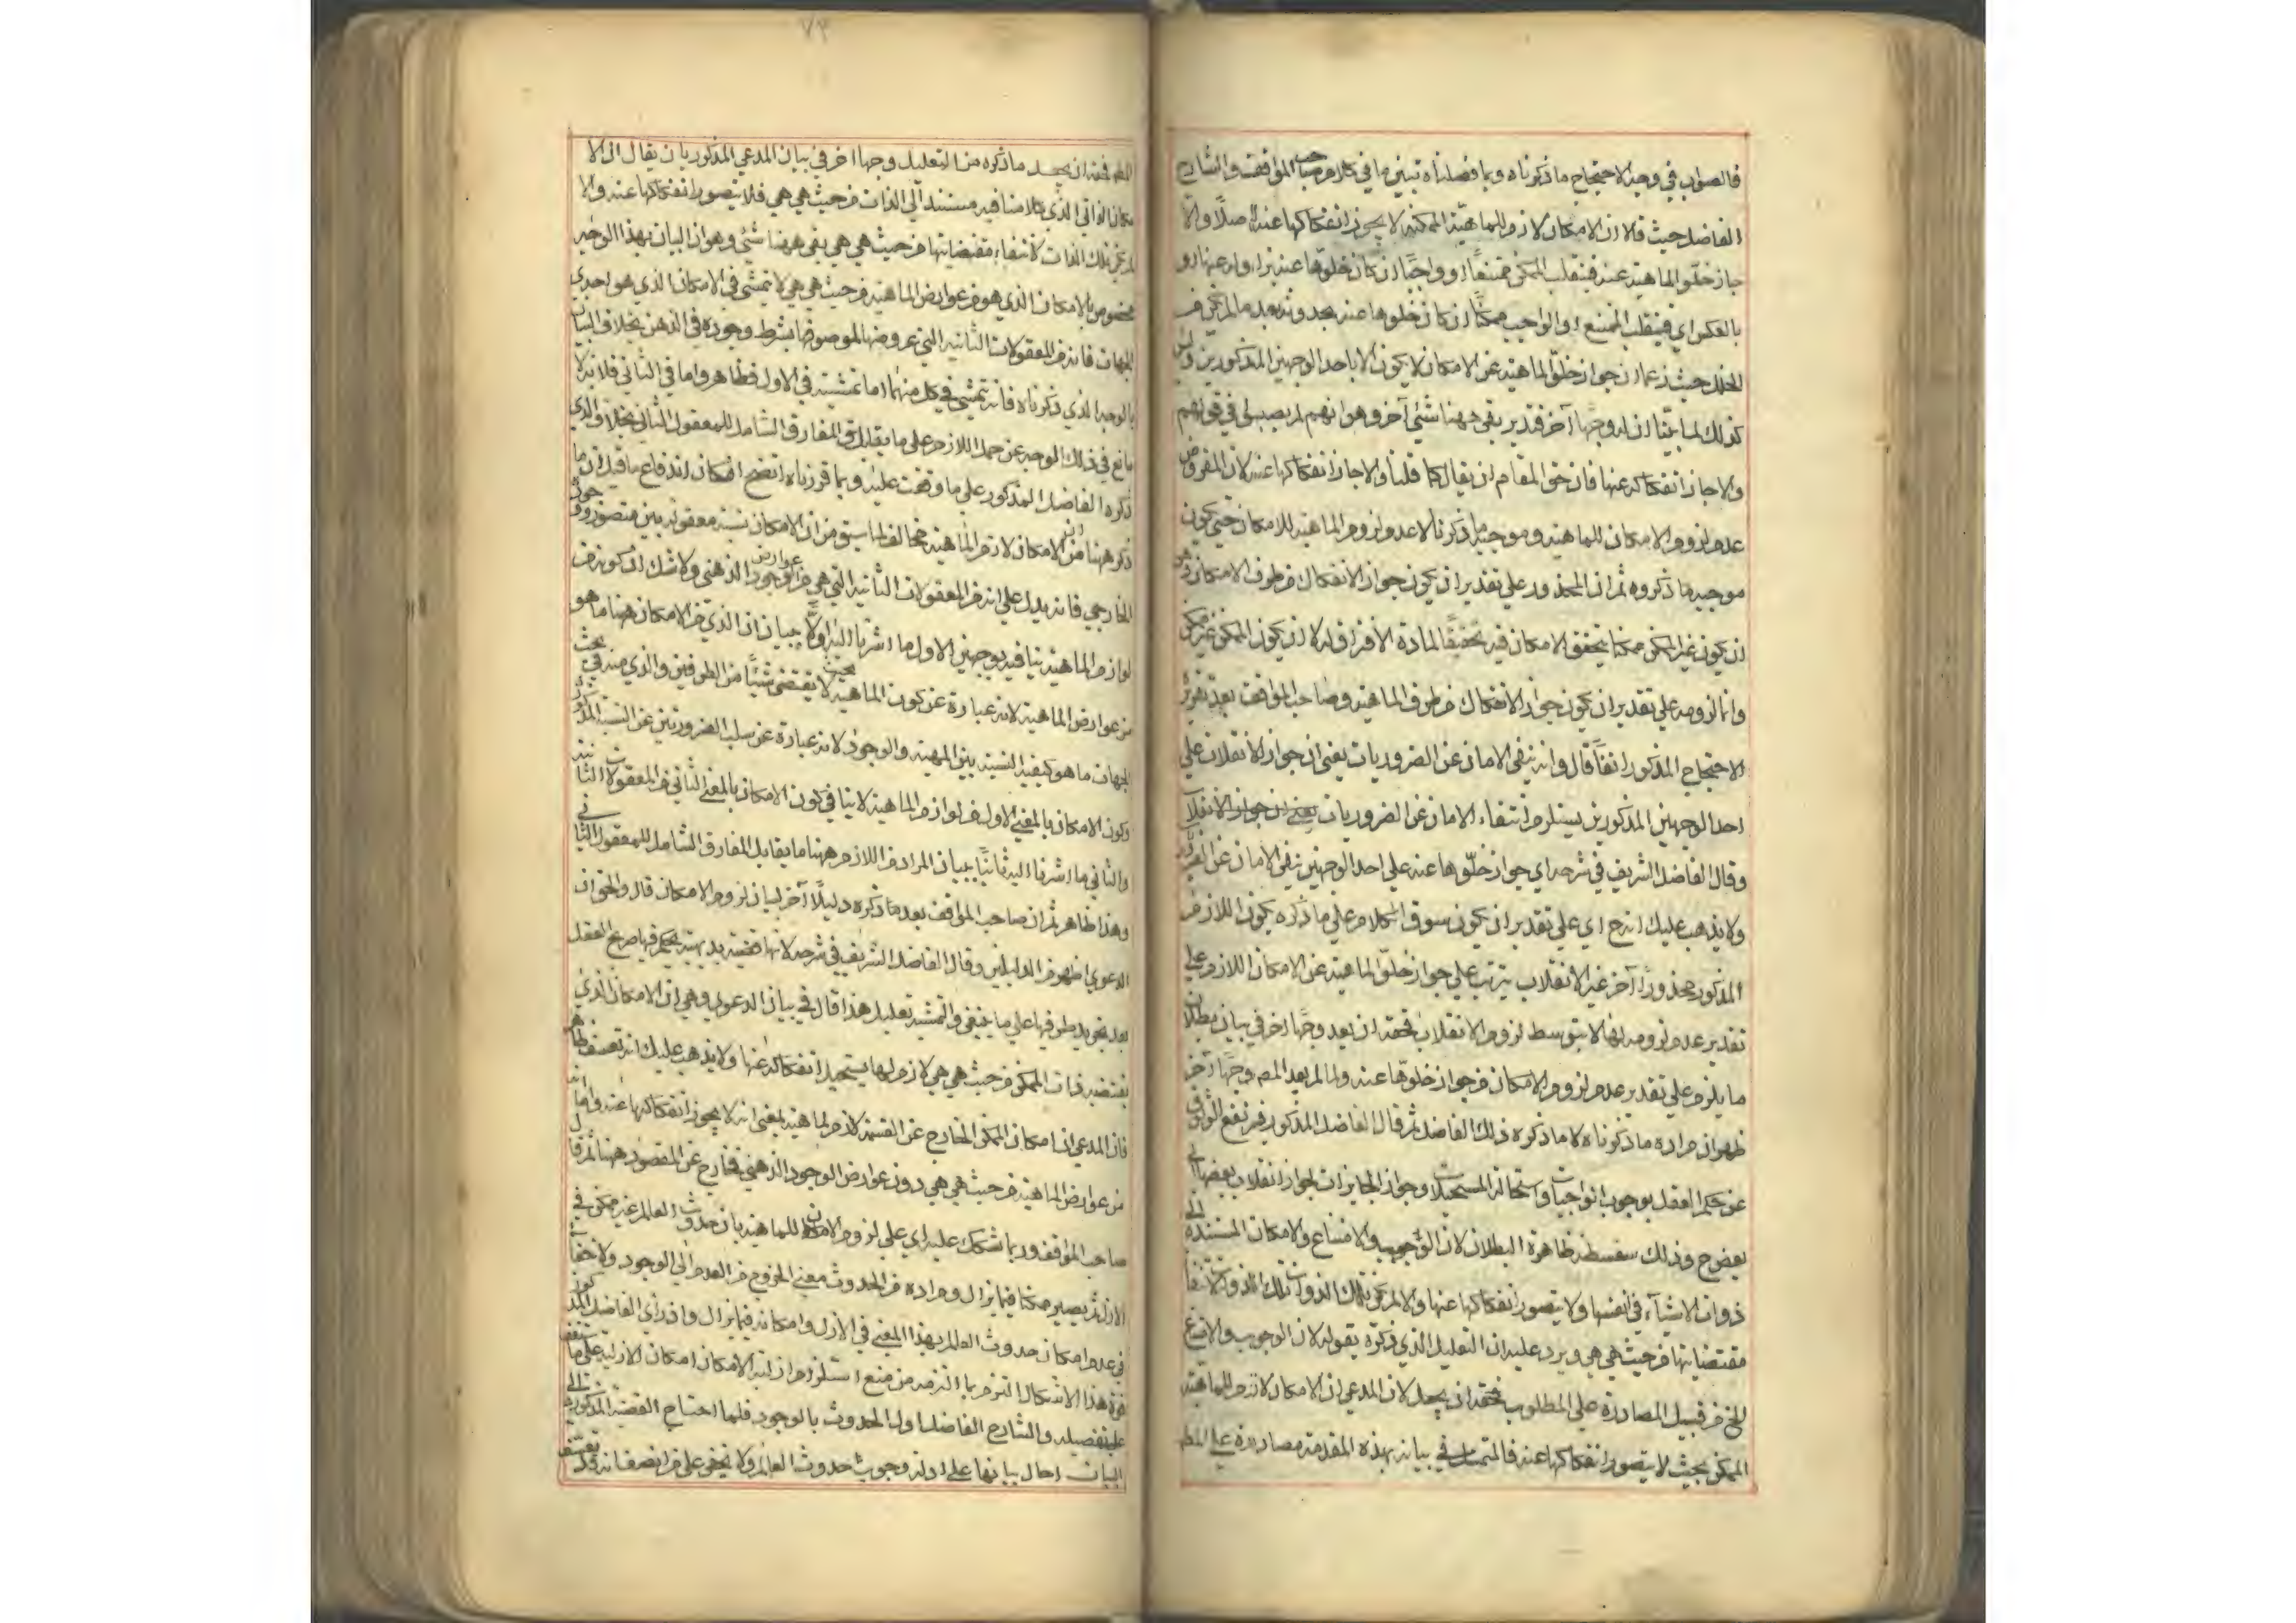 فالصواب في وجه الاحتجاج ما ذكرناه وبما فصلناه تبين ما في كلام صاحب المواقف والشارح
الفاضل حيث قالا ان الامكان لازم للماهية الممكنة لا يجوز انفكاكها عنه اصلا والا
جاز خلو الماهية عنه فينقلب الممكن ممتنعا او واجبا ان كان خلوها عنه بزواله عنها او
بالعكس اي فينقلب الممتنع او الواجب ممكنا ان كان خلوها عنه بحدوثه بعد ما لم يكن من
الخلل حيث زعما ان جواز خلو الماهية عن الامكان لا يكون الا باحد الوجهين المذكورين وليس
كذلك لما بينا ان له وجها آخر فتدبر بقي ههنا شئ آخر وهو انهم لم يصيبوا في قولهم
والا جاز انفكاكه عنها فان حق المقام ان يقال كما قلنا والا جاز انفكاكها عنه لان المفروض
عدم لزوم الامكان للماهية وموجبه ما ذكرنا لا عدم لزوم الماهية للامكان حتى يكون
موجبه ما ذكروه ثم ان المحذور على تقدير ان يكون جواز الانفكاك من طرف الامكان هو
ان يكون غير الممكن ممكنا بتحقق الامكان فيه تحقيقا لمادة الافتراق له لا ان يكون الممكن غير ممكن
وانما لزومه على تقدير ان يكون جواز الانفكاك من طرف الماهية وصاحب المواقف بعد تقرير
الاحتجاج المذكور انفا قال وانه ينفي الامان عن الضروريات يعني ان جواز الانقلاب على
احد الوجهين المذكورين يستلزم انتفاء الامان عن الضروريات يعني ان جواز الانقلاب
وقال الفاضل الشريف في شرحه اي جواز خلوها عنه على احد الوجهين ينفي الامان عن الضروريات
ولا يذهب عليك انه ح اي على تقدير ان يكون سوق الكلام على ما ذكره يكون اللازم
المذكور محذورا آخر غير الانقلاب يترتب على جواز خلو الماهية عن الامكان اللازم على
تقدير عدم لزومه لها لا بتوسط لزوم الانقلاب فحقه ان يعد وجها اخر في بيان بطلان
ما يلزم على تقدير عدم لزوم الامكان من جواز خلوها عنه ولما لم يعد المص وجها آخر
ظهر ان مراده ما ذكرناه لا ما ذكره ذلك الفاضل ثم قال الفاضل المذكور فيرتفع الوثوق
عن حكم العقل بوجوب الواجبات واستحالة المستحيلات وجواز الجايزات لجواز انقلاب بعضها الى
بعض ح وذلك سفسطة ظاهرة البطلان لان الوجوب والامتناع والامكان المستندة الى
ذوات الاشياء في انفسها ولا يتصور انفكاكها عنها والا لم تكن تلك الذوات تلك الذوات لانتفاء
مقتضياتها من حيث هي هي ويرد عليه ان التعليل الذي ذكره بقوله لان الوجوب والامتناع
الخ من قبيل المصادرة على المطلوب فحقه ان يجعل لان المدعى ان الامكان لازم للماهية
الممكن بحيث لا يتصور انفكاكها عنه فالتمسك في بيانه بهذه المقدمة مصادرة على المط
فحقه ان يجعل ما ذكره من التعليل وجها اخر في بيان المدعى المذكور بان يقال ان الا
مكان الذاتي الذي كلامنا فيه مستند الى الذات من حيث هي هي فلا يتصور انفكاكها عنه والا
لم تكن تلك الذات لانتفاء مقتضياتها من حيث هي هي بقي ههنا شئ وهو ان البيان بهذا الوجه
مخصوص بالامكان الذي هو من عوارض الماهية من حيث هي هي لا يتمشى في الامكان الذي هو احدى
الجهات فانه من المعقولات الثانية التي عروضها لموصوفها بشرط وجوده في الذهن بخلاف البيان
بالوجه الذي ذكرناه فانه يتمشى في كل منهما اما تمشيته في الاول فظاهر واما في الثاني فلانه لا
مانع في ذلك الوجه عن حمل اللازم على ما يقابل المفارق الشامل للمعقول الثاني بخلاف الذي
ذكره الفاضل المذكور على ما وقفت عليه وبما قررناه اتضح امكان اندفاع ما قيل ان ما
ذكر ههنا من ان الامكان لازم الماهية مخالف لما سبق من ان الامكان نسبة معقولة بين متصور ووجود
الخارجي فانه يدل على انه من المعقولات الثانية التي هي من عوارض الوجود الذهني ولا شك ان كونه من
لوازم الماهية ينافيه بوجهين الاول ما اشرنا اليه اولا ببيان ان الذي من الامكان ههنا ما هو
من عوارض الماهية لانه عبارة عن كون الماهية بحيث لا يقتضي شيئا من الطرفين والذي منه في بحث
الجهات ما هو كيفية النسبة بين المهية والوجود لانه عبارة عن سلب الضرورتين عن النسبة المذكورة
وكون الامكان بالمعنى الاول من لوازم الماهية لا ينافي كون الامكان بالمعنى الثاني من المعقولات الثانية
والثاني ما اشرنا اليه ثانيا ببيان المراد من اللازم ههنا ما يقابل المفارق الشامل للمعقول الثاني
وهذا ظاهر ثم ان صاحب المواقف بعد ما ذكره دليلا آخر لبيان لزوم الامكان قال والحق ان
الدعوى اظهر من الدليلين وقال الفاضل الشريف في شرحه لانها قضية بديهية يحكم فيها صريح العقل
بعد تجريد طرفيها على ما ينبغي والتمشية تعليل هذا قال في بيان الدعوى وهي ان الامكان الذي
يقتضيه ذات الممكن من حيث هي هي لازم لها يستحيل انفكاكه عنها ولا يذهب عليك انه تعسف ظاهر
فان المدعى ان امكان الممكن الخارج عن القسمة لازم لماهيته بمعنى انه لا يجوز انفكاكها عنه واما انه
من عوارض الماهية من حيث هي هي دون عوارض الوجود الذهني فخارج عن المقصود ههنا ثم قال
صاحب المواقف وربما شكك عليه اي على لزوم الامكان للماهية بان حدوث العالم غير ممكن في
الازل ثم يصير ممكنا فيما يزال ومراده من الحدوث معنى الخروج من العدم الى الوجود ولا خفاء
في عدم امكان حدوث العالم بهذا المعنى في الازل وامكانه فيما يزال واذ رأى الفاضل المذكور
قوة هذا الاشكال التزم بما التزمه من منع استلزام ازلية الامكان امكان الازلية على ما ستقف
على تفصيله والشارح الفاضل اول الحدوث بالوجود فلما احتاج القضية المذكورة الى
البيان احال بيانها على ادلة وجوب حدوث العالم ولا يخفى على من انصف انه قد تعسف